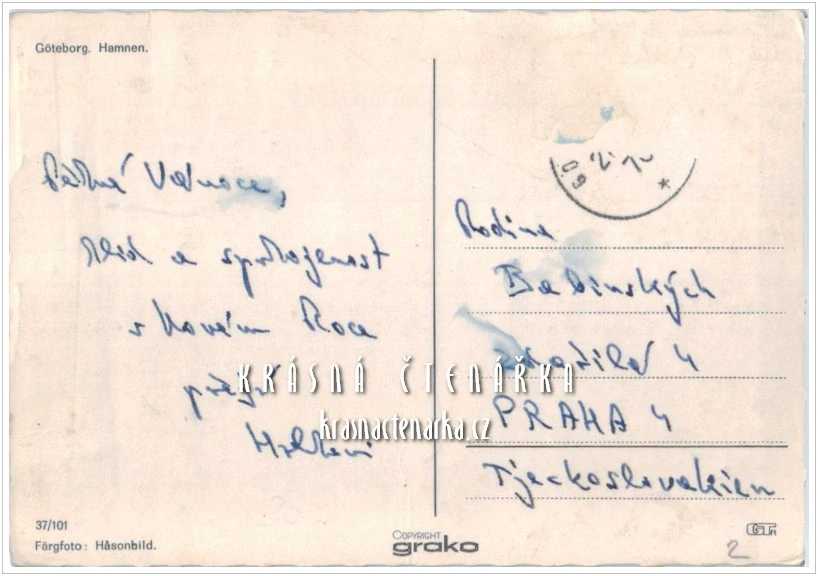 Göteborg. Hamnen.
Vánoce,
klid a spokojenost
v Novém Roce
přejí
Rodina
Babinských
4
PRAHA 4
Tjeckoslovakien
KRÁSNÁ ČTENÁŘKA
krasnactenarka.cz
37/101
Färgfoto: Håsonbild.
COPYRIGHT
grako
2